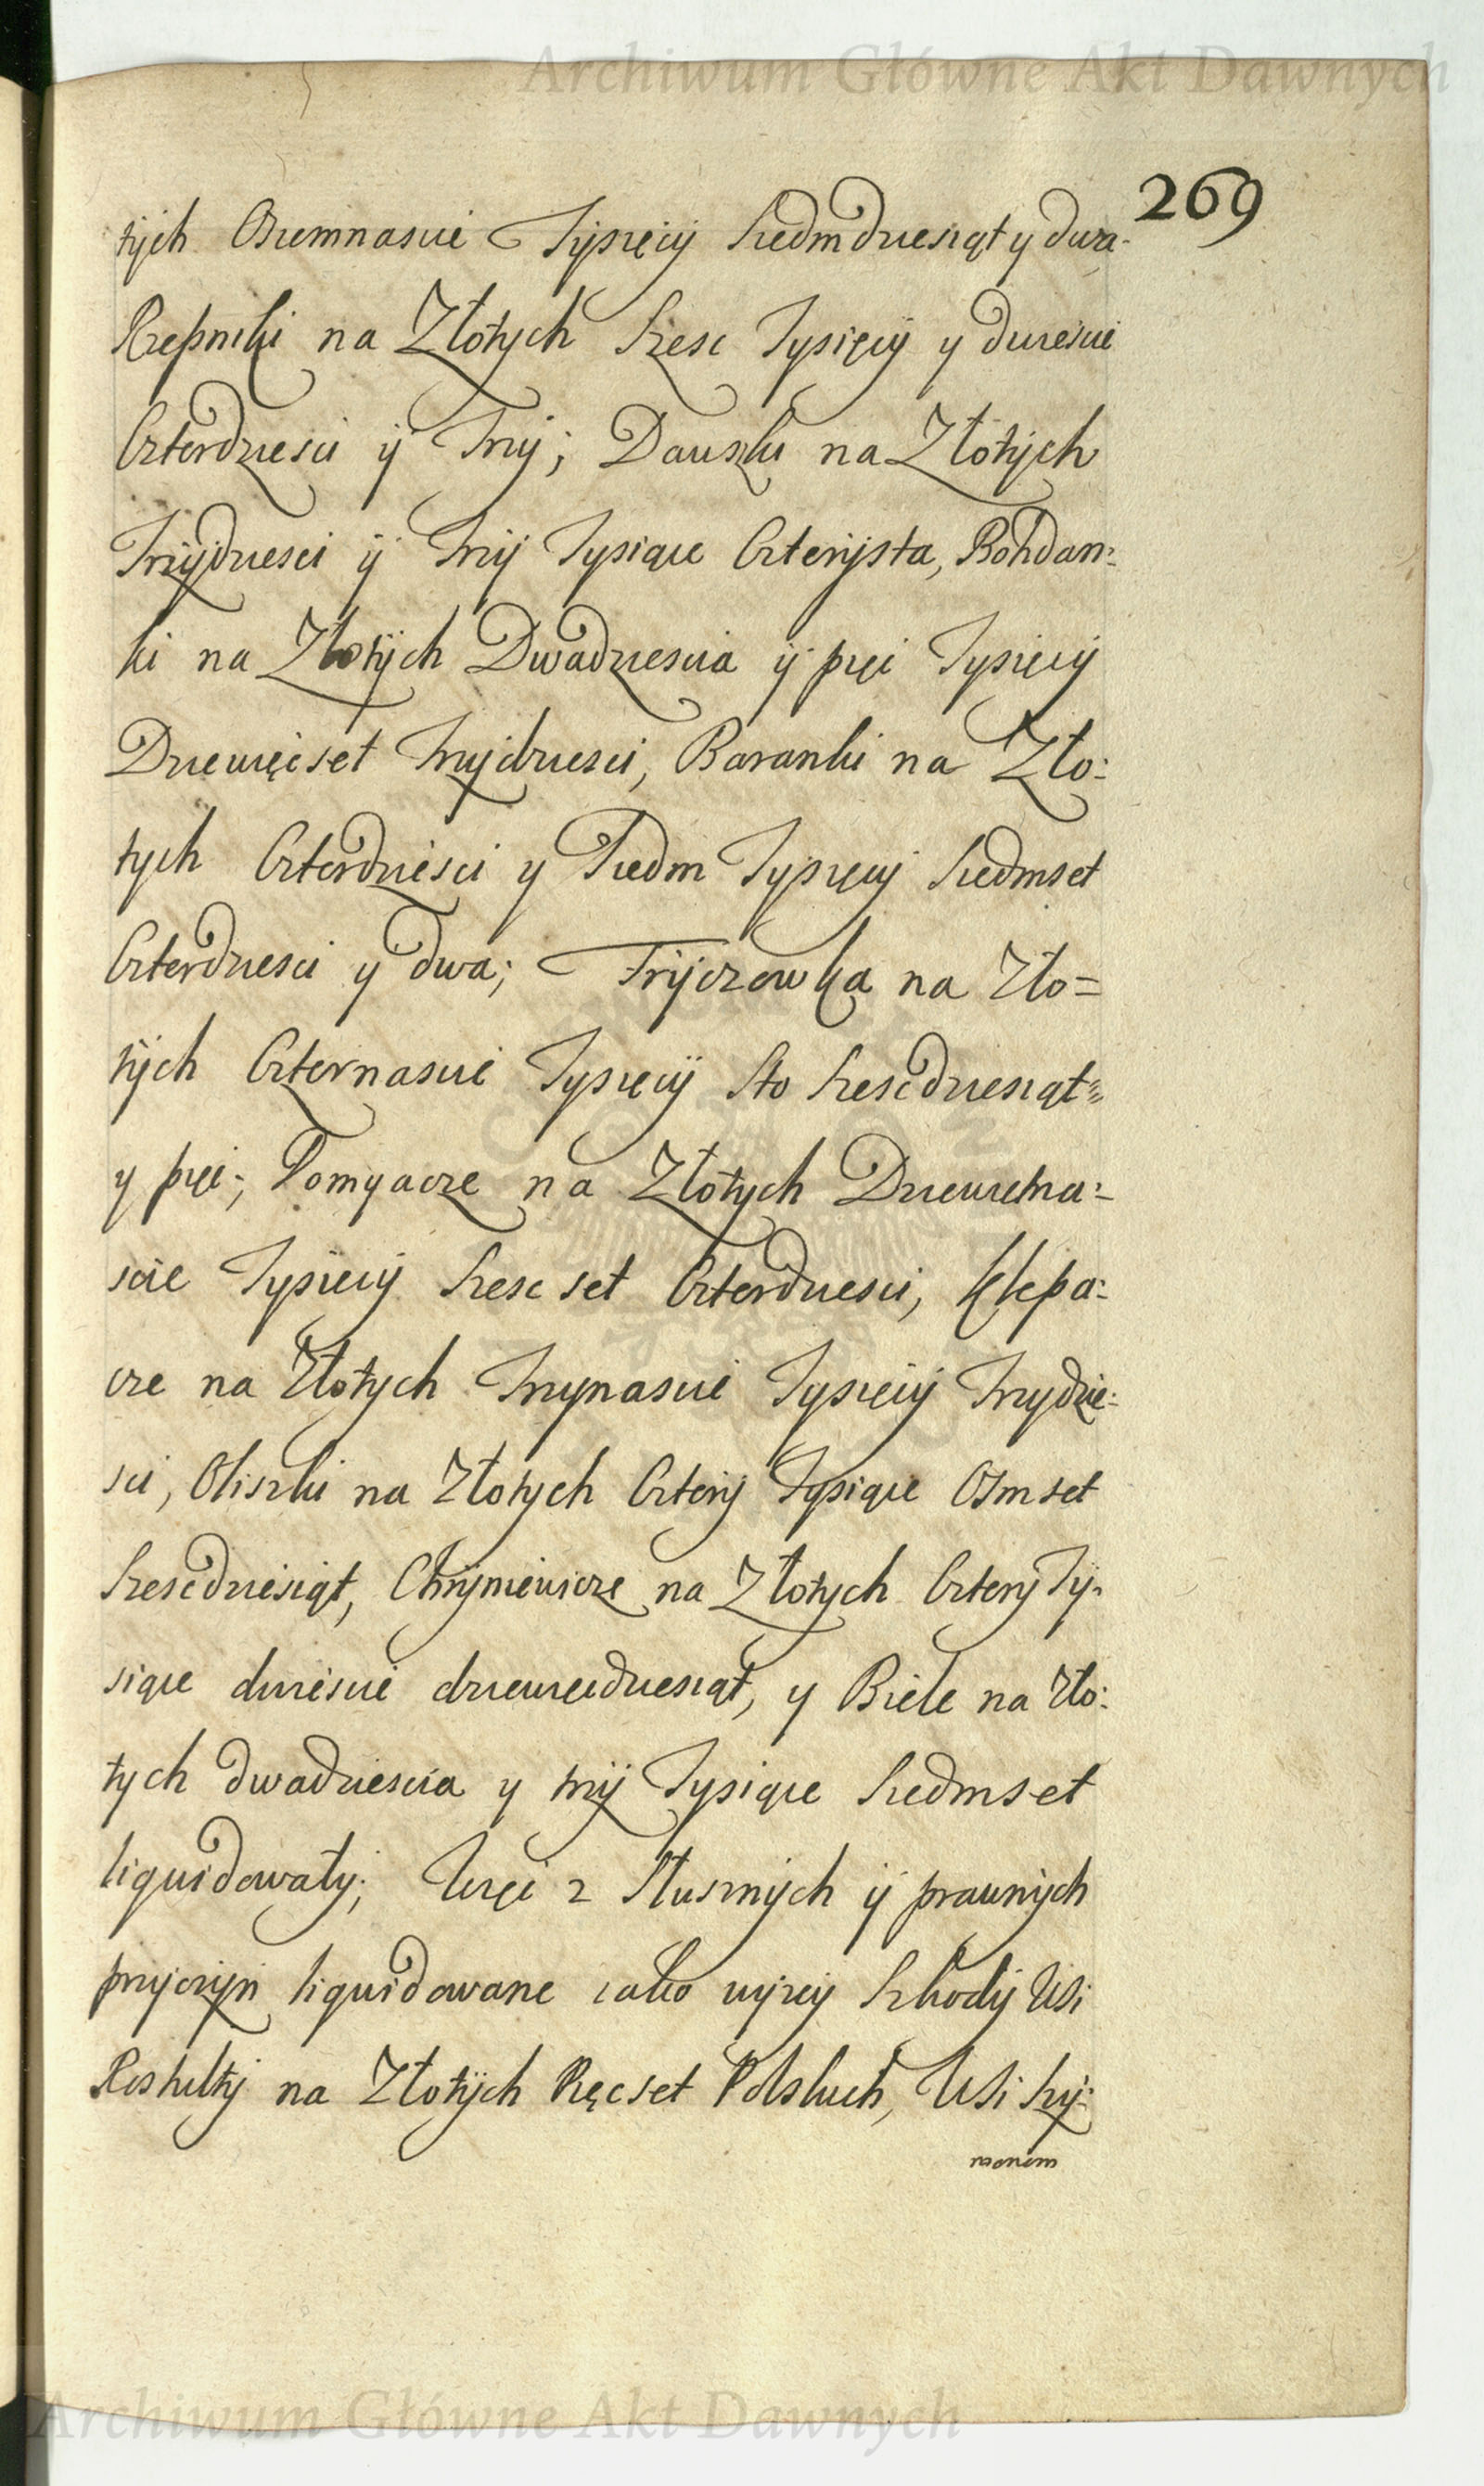 Archiwum Główne Akt Dawnych
269
tych Osiemnascie Tysięcy Siedmdziesiąt y dwa
Rzepniki na Złotych Szesc Tysięcy y dwiescie
Czterdziesci y Trzy; Dauszki na Złotych
Trzydziesci y Trzy Tysiące Czterysta, Bohdan:
ki na Złotych Dwadziescia y pięc Tysięcy
Dziewięcset Trzydziesci, Baranki na Zło:
tych Czterdziesci y Siedm Tysięcy Siedmset
Czterdziesci y dwa; Tryczowka na Zło=
tych Czternascie Tysięcy Sto Szescdziesiąt
y pięc; Pomyacze na Złotych Dziewietna:
scie Tysięcy Szesc set Czterdziesci, Klepa:
cze na Złotych Trzynascie Tysięcy Trzydzie:
sci, Oliszki na Złotych Cztery Tysiące Osmset
Szescdziesiąt, Chryniewicze na Złotych Cztery Ty:
siące dwiescie dziewiecdziesiąt, y Biele na Zło:
tych dwadziescia y trzy Tysiące Siedmset
liquidowały; Więc z Słusznych y prawnych
przyczyn liquidowane iako wyzey Szkody Wsi
na Złotych Pięcset Polskich, Wsi Szy:
manom
Archiwum Główne Akt Dawnych